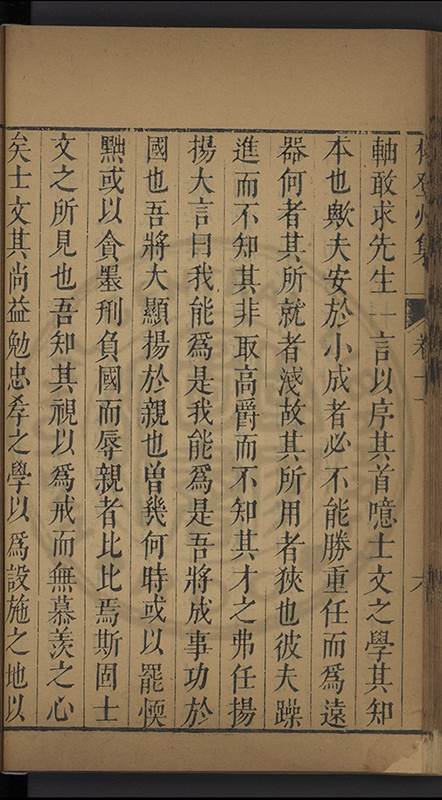 軸敢求先生一言以序其首噫士文之學其知
本也歟夫安於小成者必不能勝重任而爲遠
器何者其所就者淺故其所用者狹也彼夫躁
進而不知其非取高爵而不知其才之弗任揚
揚大言曰我能爲是我能爲是吾將成事功於
國也吾將大顯揚於親也曽幾何時或以罷愞
黜或以貪墨刑負國而辱親者比比焉斯固士
文之所見也吾知其視以爲戒而無慕羨之心
矣士文其尚益勉忠孝之學以爲設施之地以